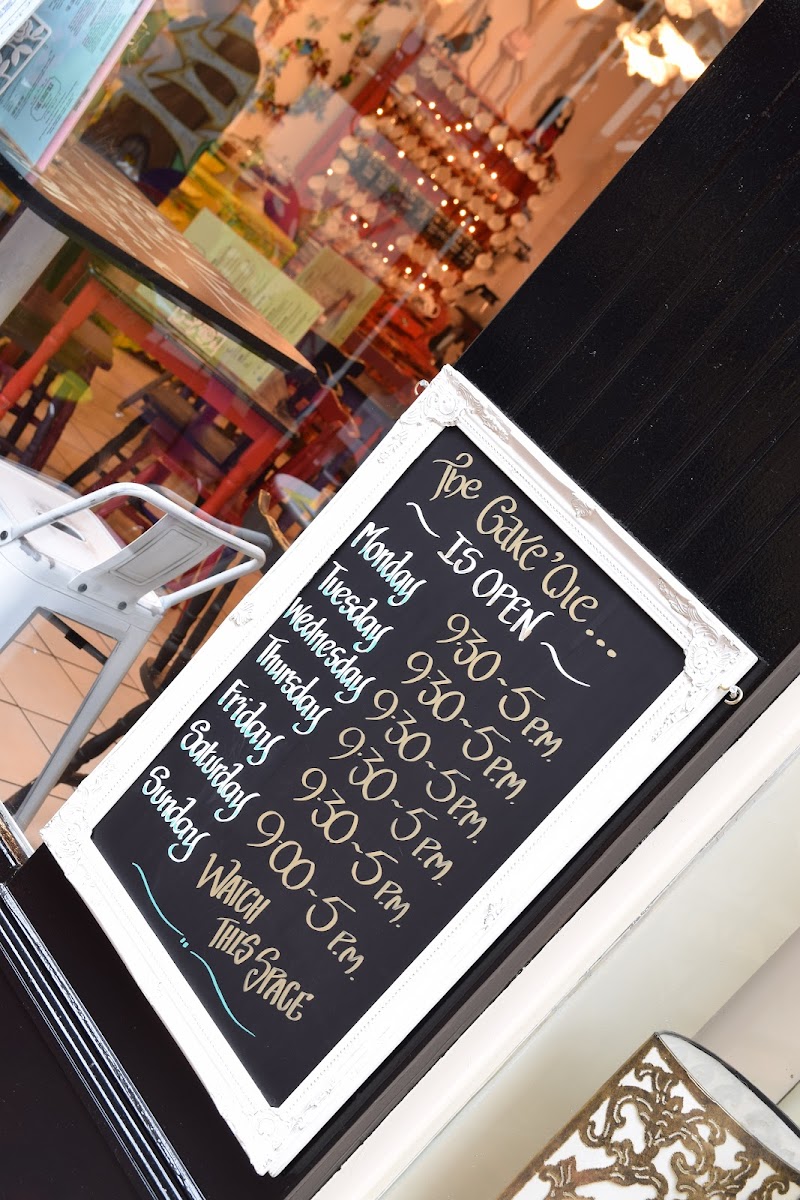 The Cake 'Ole...
~ IS OPEN ~
Monday 9.30~5 P.M.
Tuesday 9.30~5 P.M.
Wednesday 9.30~5 P.M.
Thursday 9.30~5 P.M.
Friday 9.30~5 P.M.
Saturday 9.00~5 P.M.
Sunday WATCH
THIS SPACE